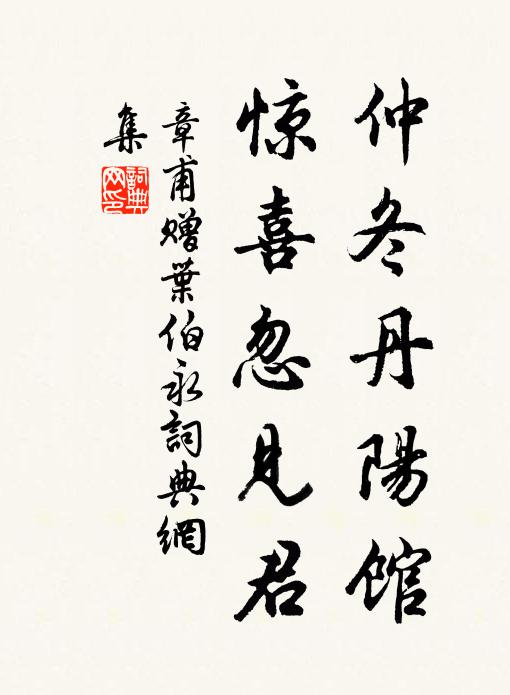 仲冬丹陽館
惊喜忽見君
章甫赠葉伯永詞典網
集
詞典
网印